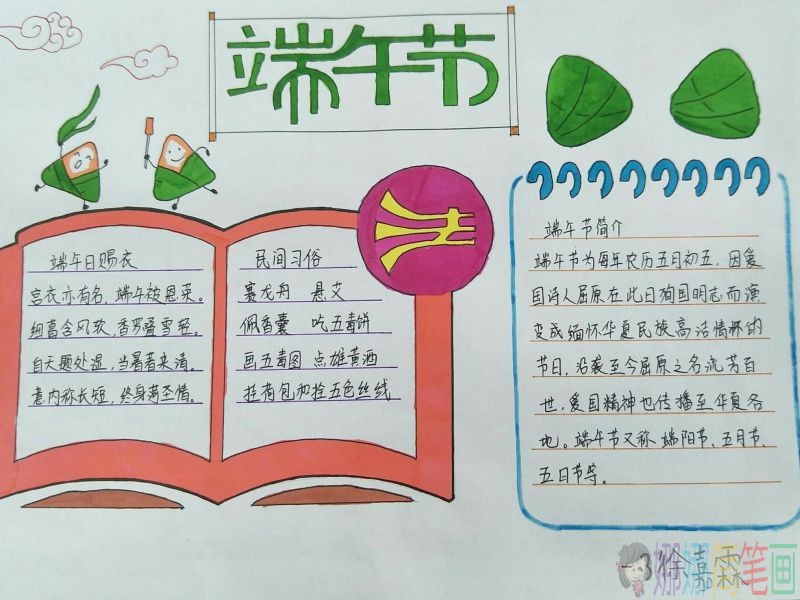 端午节
端午日赐衣
宫衣亦有名，端午被恩荣。
细葛含风软，香罗叠雪轻。
自天题处湿，当暑著来清。
意内称长短，终身荷圣情。
民间习俗
赛龙舟 悬艾
佩香囊 吃五毒饼
画五毒图 点雄黄酒
挂荷包和拴五色丝线
端午节简介
端午节为每年农历五月初五，因爱
国诗人屈原在此日殉国明志而演
变成缅怀华夏民族高洁情怀的
节日，沿袭至今屈原之名流芳百
世，爱国精神也传播至华夏各
地。端午节又称端阳节、五月节、
五日节等。
嘉霖
笔画